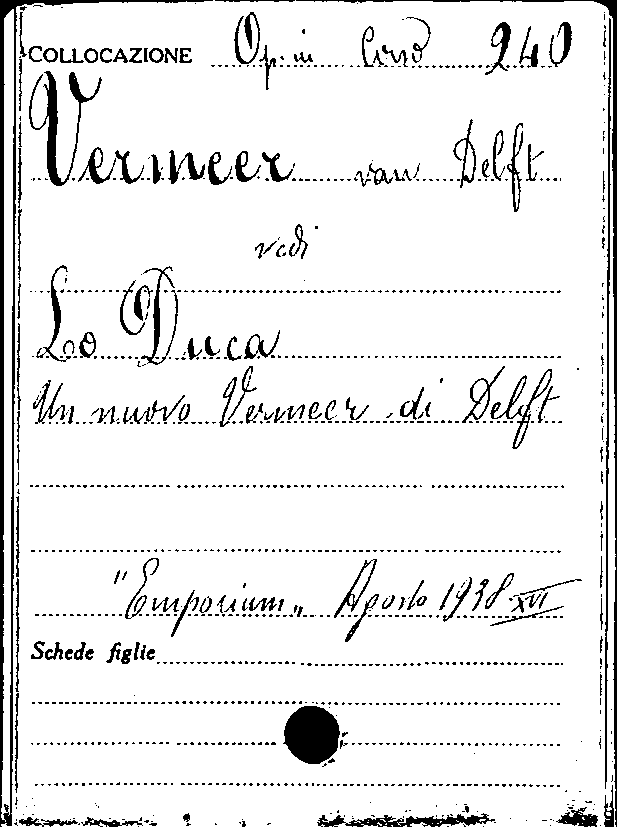 COLLOCAZIONE Op. in Corso 240
Vermeer van Delft
vedi
Lo Duca
Un nuovo Vermeer di Delft
"Emporium„ Agosto 1938 XVI
Schede figlie